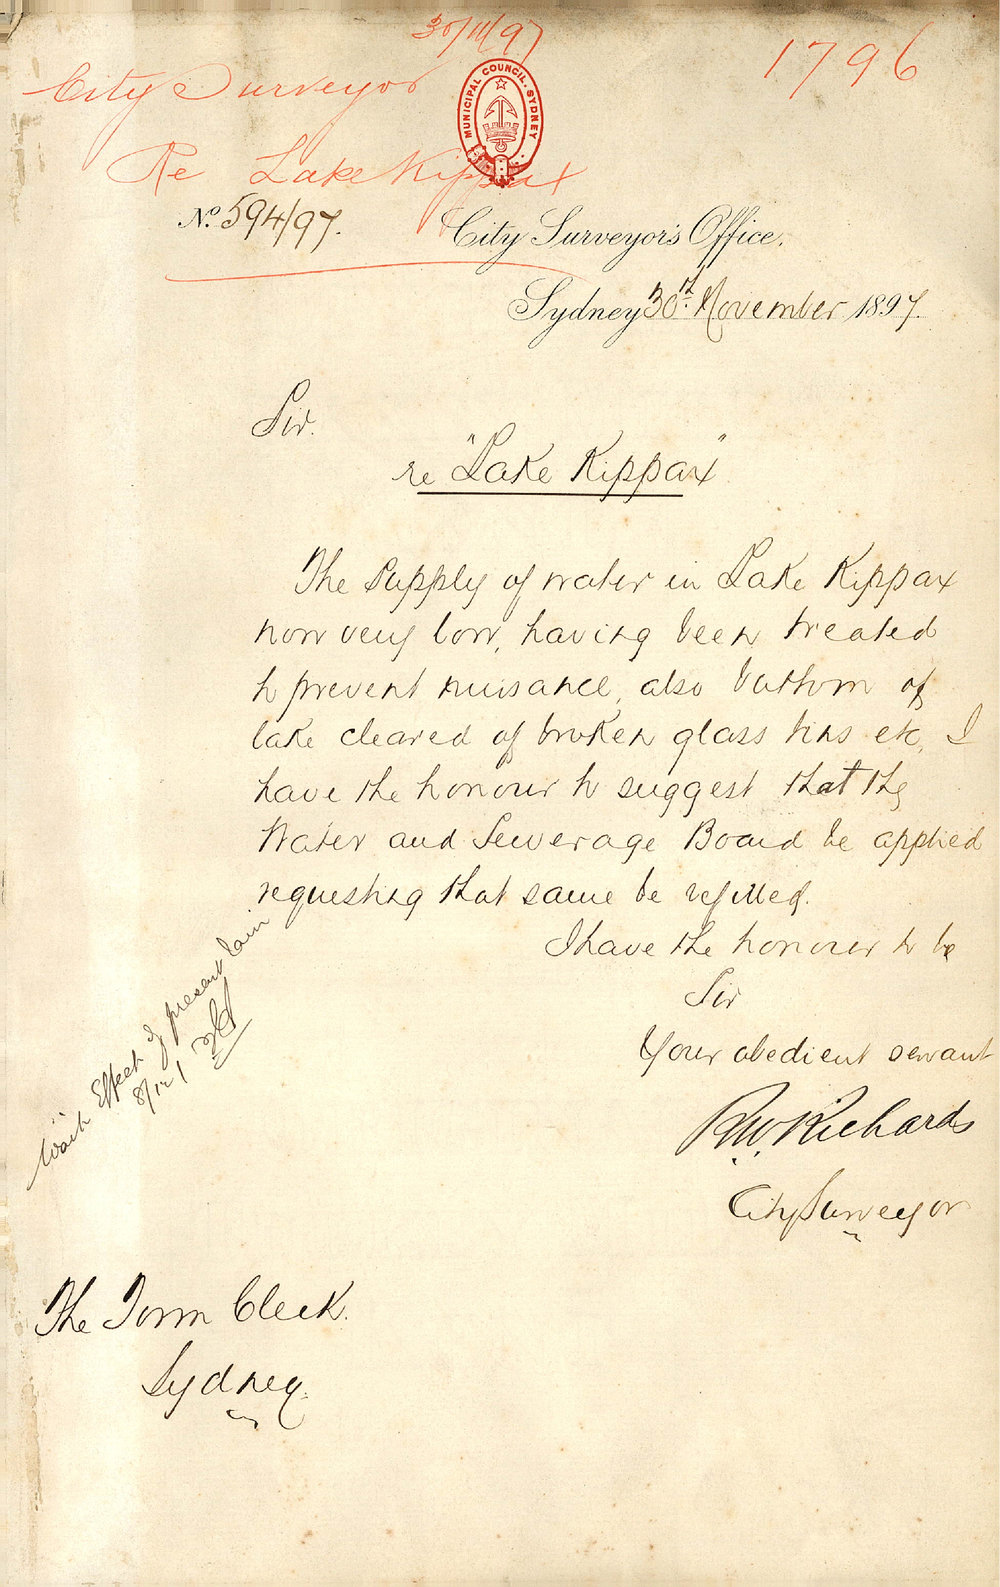 30/11/97
1796
City Surveyor
MUNICIPAL COUNCIL. SYDNEY
Re Lake Kippax
No. 594/97.
City Surveyor's Office,
Sydney 30th November 1897.
Sir.
re "Lake Kippax"
The Supply of water in Lake Kippax
now very low, having been treated
to prevent nuisance, also bottom of
lake cleared of broken glass tins etc, I
have the honour to suggest that the
Water and Sewerage Board be applied
requesting that same be refilled.
I have the honour to be
Sir
Your obedient servant
RW Richards
City Surveyor
Wait Effect of present rain
8/12/
The Town Clerk.
Sydney.